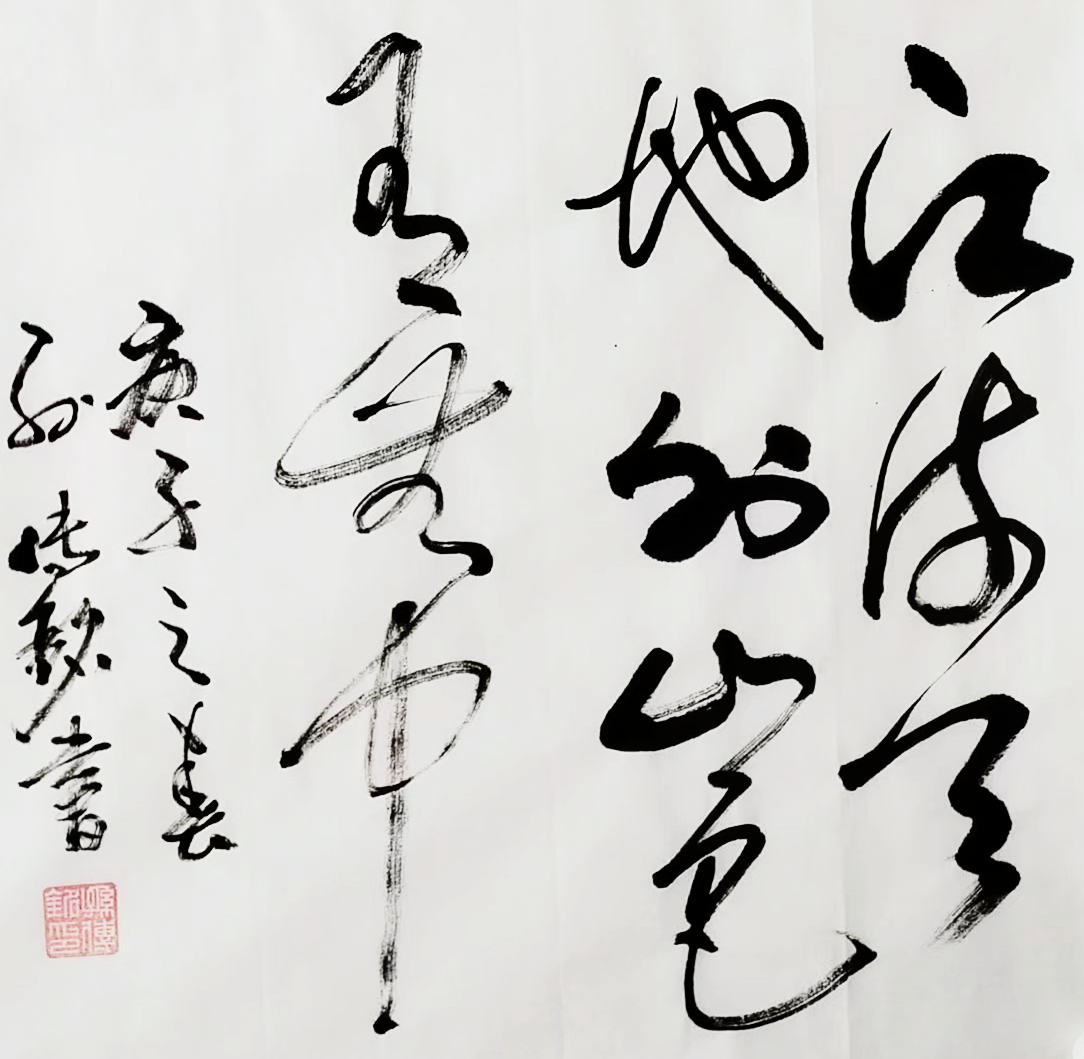 江流天
地外山色
有無中
庚子之春
孙传欽書